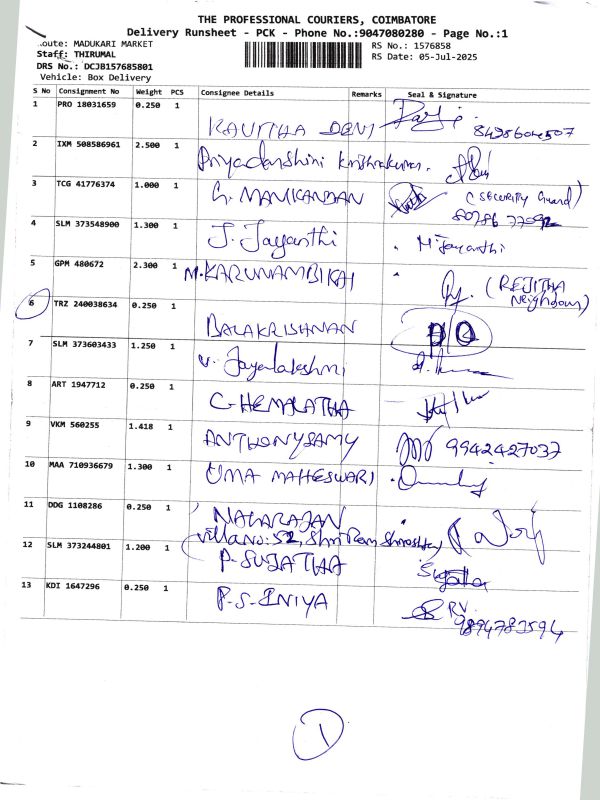 THE PROFESSIONAL COURIERS, COIMBATORE
Delivery Runsheet - PCK - Phone No.:9047080280 - Page No.:1
Route: MADUKARI MARKET
RS No.: 1576858
Staff: THIRUMAL
RS Date: 05-Jul-2025
DRS No.: DCJB157685801
Vehicle: Box Delivery
S No Consignment No Weight PCS Consignee Details Remarks Seal & Signature
1 PRO 18031659 0.250 1
KAVITHA DENI
2 IXM 508586961 2.500 1
Priyadarshini Krishnakumar.
3 TCG 41776374 1.000 1
G. MANIKANDAN (Security Guard)
4 SLM 373548900 1.300 1
J. Jayanthi M. Jayanthi
5 GPM 480672 2.300 1
M. KARUNAMBIKAI (REJITHA Neighbour)
6 TRZ 240038634 0.250 1
BALAKRISHNAN
7 SLM 373603433 1.250 1
V. Jayalakshmi
8 ART 1947712 0.250 1
C. HEMALATHA
9 VKM 560255 1.418 1
ANTHONYSAMY 9942427037
10 MAA 710936679 1.300 1
UMA MAHESWARI
11 DDG 1108286 0.250 1
NAGARAJAN
Villa no: 52, Shri Ram
12 SLM 373244801 1.200 1
P. SUJATHA Sujatha
13 KDI 1647296 0.250 1
P. S. INIYA RV.
9894783594
1